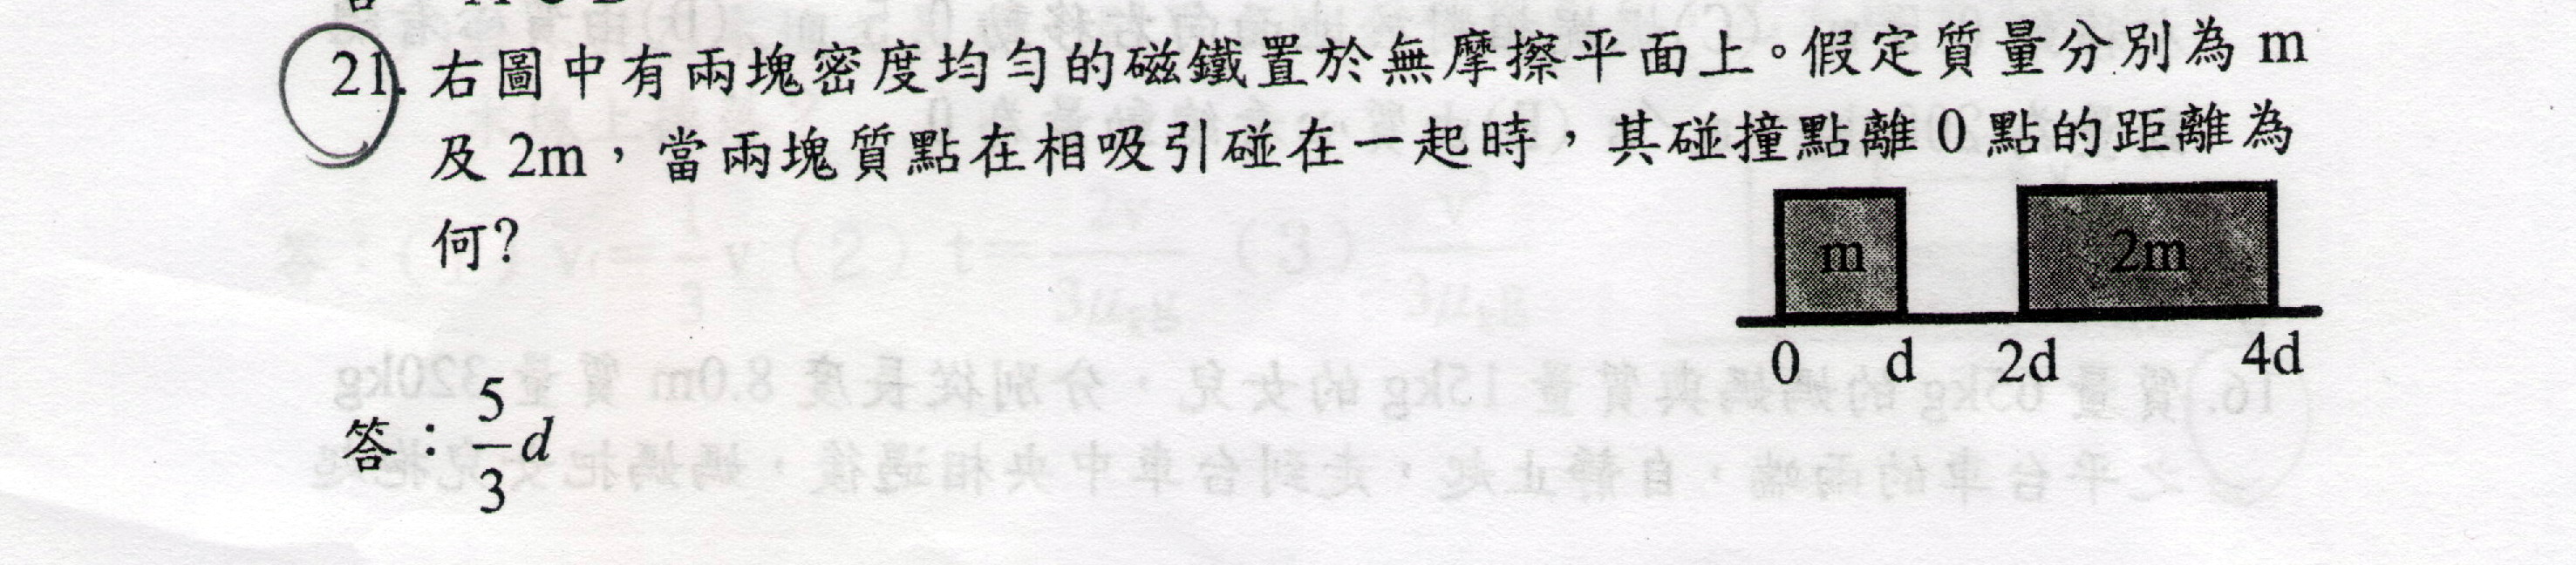 21. 右圖中有兩塊密度均勻的磁鐵置於無摩擦平面上。假定質量分別為 m
及 2m，當兩塊質點在相吸引碰在一起時，其碰撞點離 0 點的距離為
何?
m 2m
0 d 2d 4d
答：5/3 d